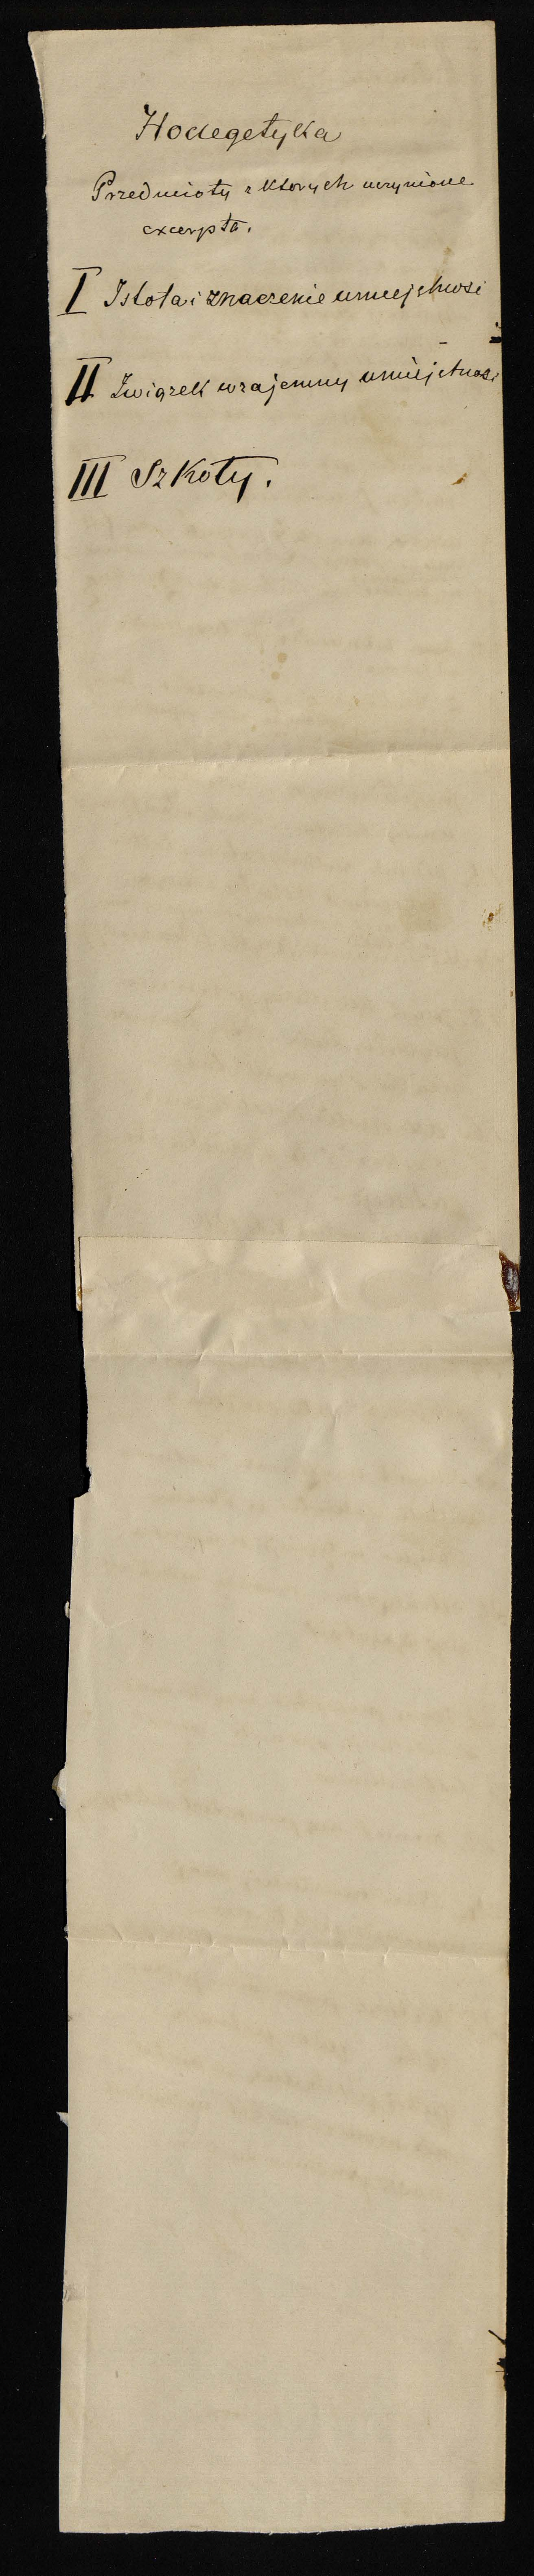 Hodegetyka
Przedmioty z których uczynione
excerpta.
I Istota i znaczenie umiejętności
II Związek wzajemny umiejętności
III Szkoły.